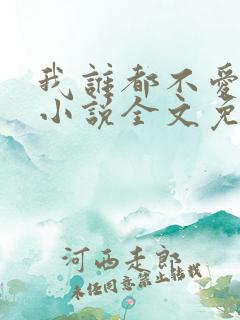 我誰都不愛
小说全文免
河西走郎
未经同意禁止转载